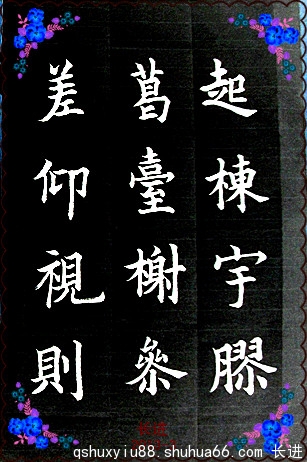 起棟宇膠
葛臺榭參
差仰視則
qshuxyiu88.shuhua66.com 长进